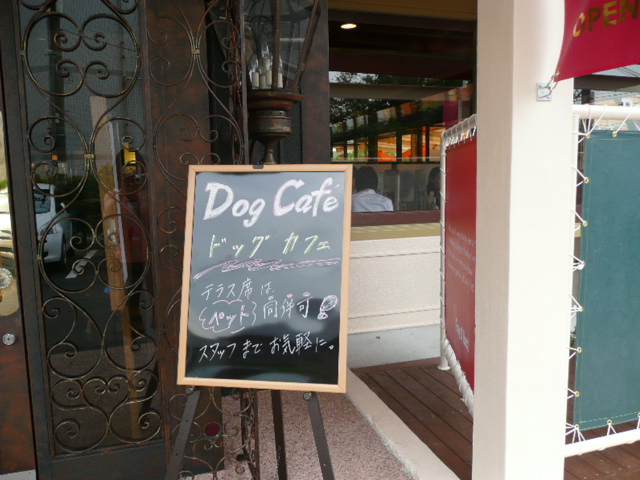 OPEN
Dog Café
ドッグ カフェ
テラス席は
ペット同伴可
スタッフまでお気軽に。